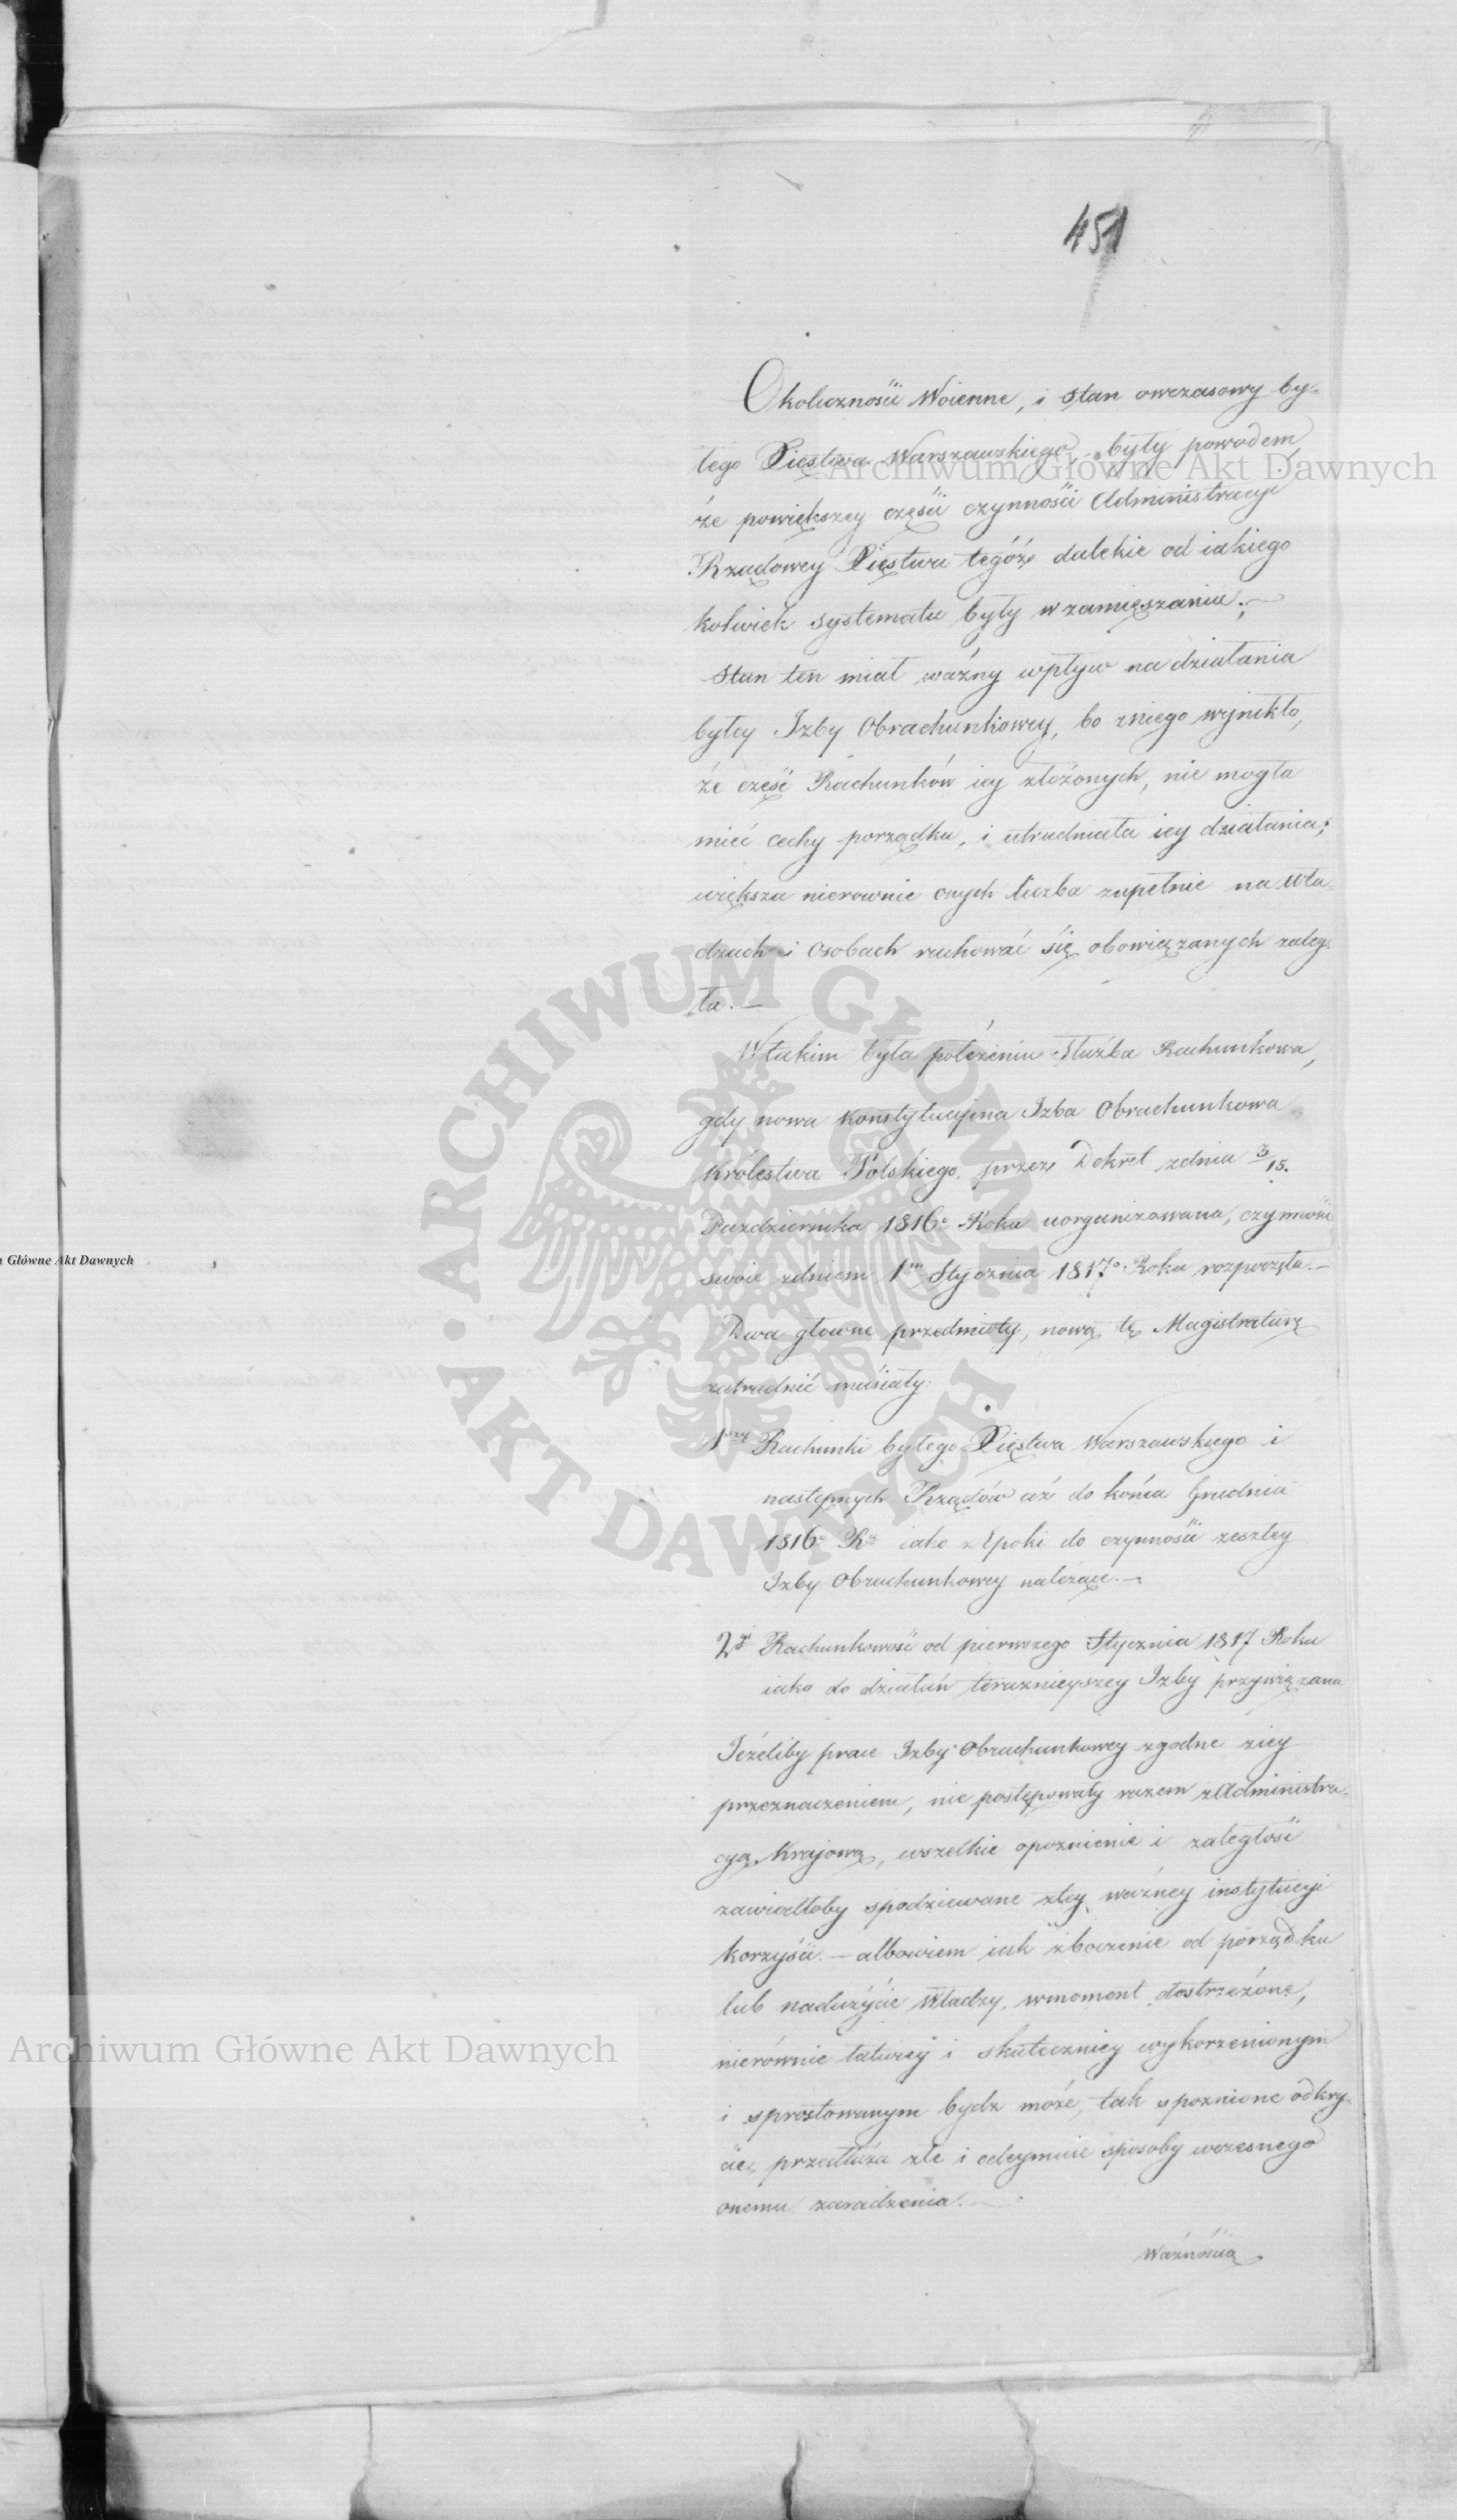 451
Okoliczności Woienne, i stan owczasowy by-
łego Xięstwa Warszawskiego, były powodem,
że powiększey części czynności Administracyi
Rządowey Xięstwa tegóż dalekie od iakiego
kolwiek systematu były w zamięszaniu;—
Stan ten miał ważny wpływ na działania
byłey Izby Obrachunkowey, bo zniego wynikło,
że część Rachunków iey złożonych, nie mogła
mieć cechy porządku, i utrudniała iey działania;
większa nierownie onych liczba zupełnie na Wła-
dzach i Osobach rachować się obowiązanych zaleg-
ła.—
Wtakim była położeniu Służba Rachunkowa,
gdy nowa konstytucyjna Izba Obrachunkowa
Królestwa Polskiego, przez Dekret zdnia 3/15.
Października 1816o Roku uorganizowana, czynności
swoie zdniem 1m Stycznia 1817o Roku rozpoczęła.—
Dwa głowne przedmioty, nową tę Magistraturę
zatrudnić musiały:
1szy Rachunki byłego Xięstwa Warszawskiego i
następnych Rządów aż do końca Grudnia
1816o Ru iako z Epoki do czynności zeszłey
Izby Obrachunkowey należące.—
2gi Rachunkowość od pierwszego Stycznia 1817 Roku
iako do działań teraznieyszey Izby przywiązana
Jeżeliby prace Izby Obrachunkowey zgodne ziey
przeznaczeniem, nie postępowały razem zAdministra-
cyą Krajową, wszelkie opoznienie i zaległość
zawiodłoby spodziewane ztey ważney instytucyi
korzyści.— albowiem iak zboczenie od porządku
lub nadużycie Władzy, wmoment dostrzeżone,
nierównie łatwiey i skuteczniey wykorzenionym
i sprostowanym bydz może, tak spoznione odkry-
cie, przedłuża złe i odeymuie sposoby wczesnego
onemu zaradzenia.—
Ważnością
Archiwum Główne Akt Dawnych
Główne Akt Dawnych
ARCHIWUM GŁÓWNE
AKT DAWNYCH
Archiwum Główne Akt Dawnych